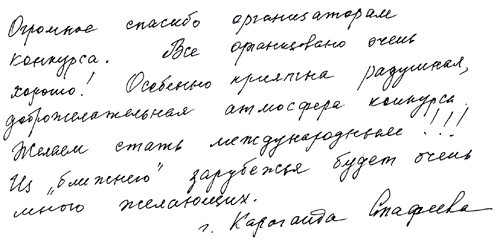 Огромное спасибо организаторам
конкурса. Все организовано очень
хорошо! Особенно приятна радушная,
доброжелательная атмосфера конкурса.
Желаем стать международными!!!
Из „ближнего" зарубежья будет очень
много желающих.
г. Караганда Спафеева